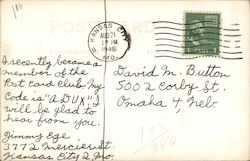 POST CARD
KANSAS CITY
AUG 21
PM
1946
MO.
I recently became a
member of the
Post card Club. My
Code is "A DUX". I
will be glad to
hear from you.
Jimmy Ege
3772 Mercier St.
Kansas City 2, Mo.
David M. Button
5002 Corby St.
Omaha 4, Neb.